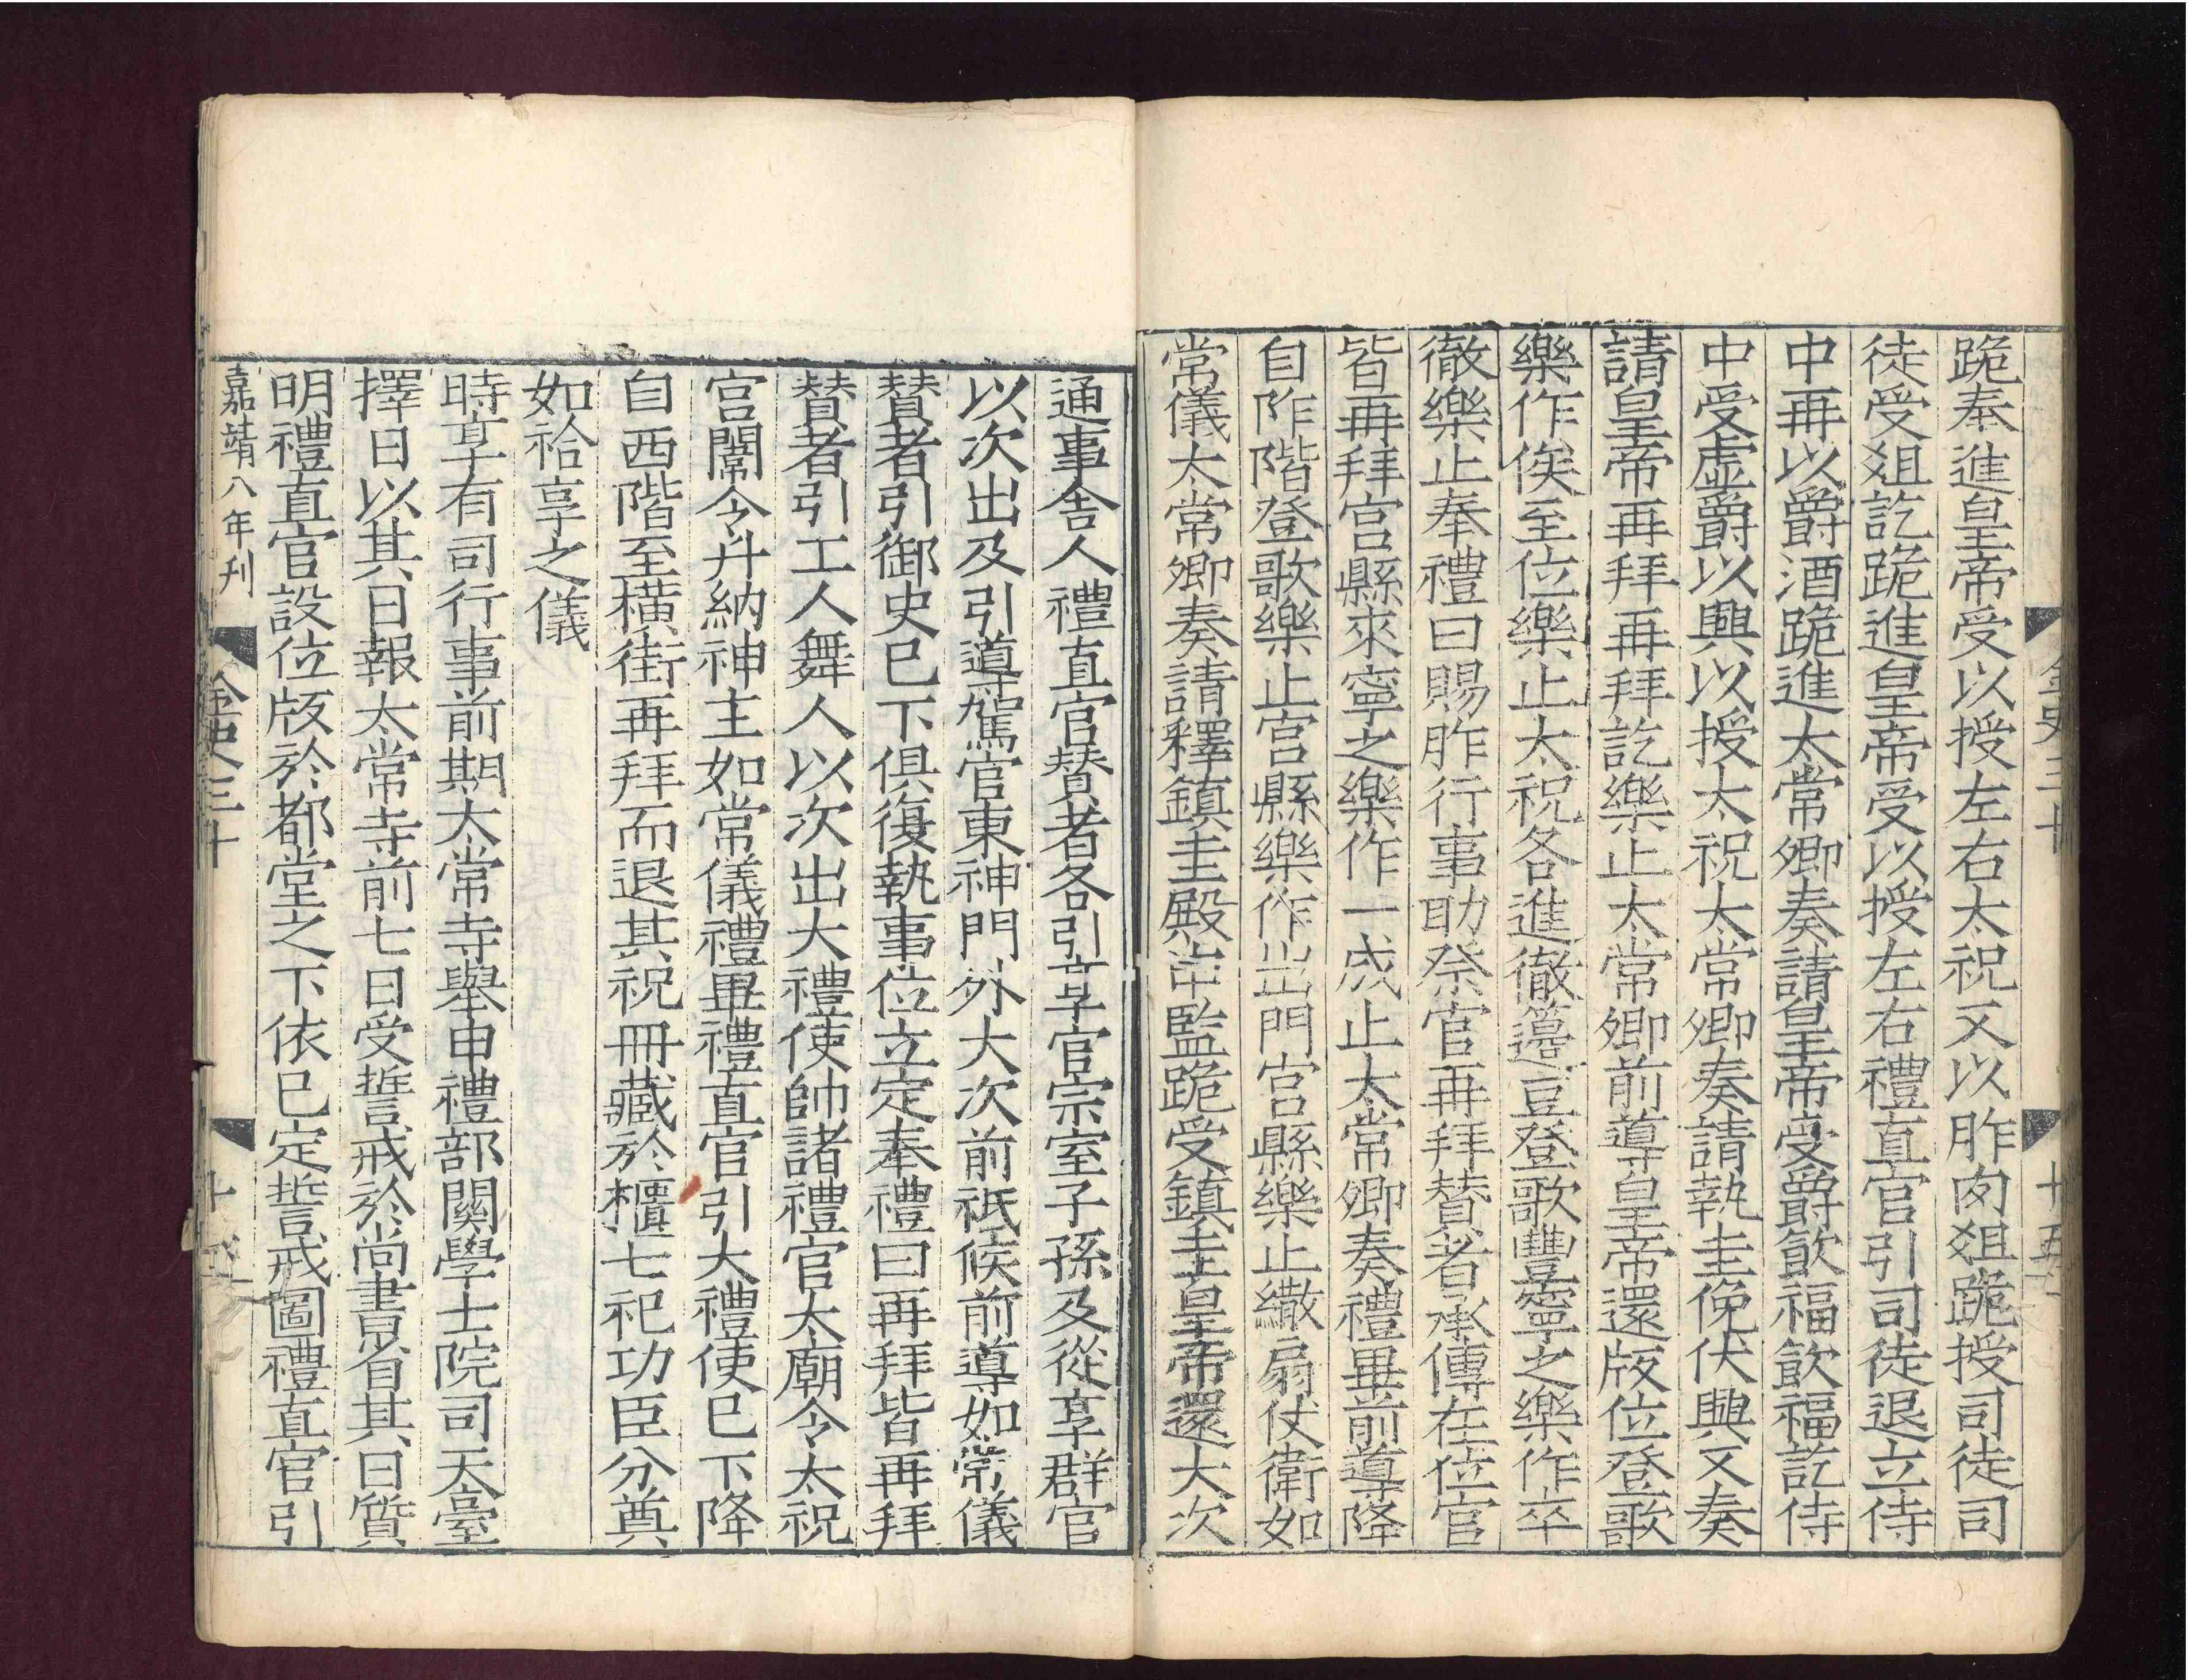 跪奉進皇帝受以授左右太祝又以胙肉俎跪授司徒司
徒受俎訖跪進皇帝受以授左右禮直官引司徒退立侍
中再以爵酒跪進太常卿奏請皇帝受爵飮福飮福訖侍
中受虛爵以興以授太祝太常卿奏請執圭俛伏興又奏
請皇帝再拜再拜訖樂止太常卿前導皇帝還版位登歌
樂作俟至位樂止太祝各進徹籩豆登歌豐寧之樂作卒
徹樂止奉禮曰賜胙行事助祭官再拜贊者承傳在位官
皆再拜宮縣來寧之樂作一成止太常卿奏禮畢前導降
自阼階登歌樂止宮縣樂作出門宮縣樂止繖扇仗衛如
常儀太常卿奏請釋鎮圭殿中監跪受鎮圭皇帝還大次
金史三十
十五
通事舍人禮直官贊者各引享官宗室子孫及從享群官
以次出及引導駕官東神門外大次前祗候前導如常儀
贊者引御史已下俱復執事位立定奉禮曰再拜皆再拜
贊者引工人舞人以次出大禮使帥諸禮官太廟令太祝
宮闈令升納神主如常儀禮畢禮直官引大禮使已下降
自西階至橫街再拜而退其祝冊藏於櫃七祀功臣分奠
如祫享之儀
時享有司行事前期太常寺舉申禮部關學士院司天臺
擇日以其日報太常寺前七日受誓戒於尚書省其日質
明禮直官設位版於都堂之下依已定誓戒圖禮直官引
嘉靖八年刊
金史三十